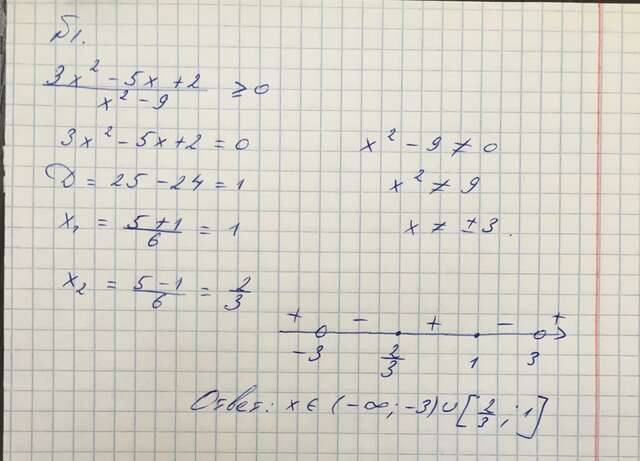 №1.
(3x² - 5x + 2)/(x² - 9) ≥ 0
3x² - 5x + 2 = 0
D = 25 - 24 = 1
x₁ = (5 + 1)/6 = 1
x₂ = (5 - 1)/6 = 2/3
x² - 9 ≠ 0
x² ≠ 9
x ≠ ± 3.
+ - + - +
-3 2/3 1 3
Ответ: x ∈ (-∞; -3) ∪ [2/3; 1]